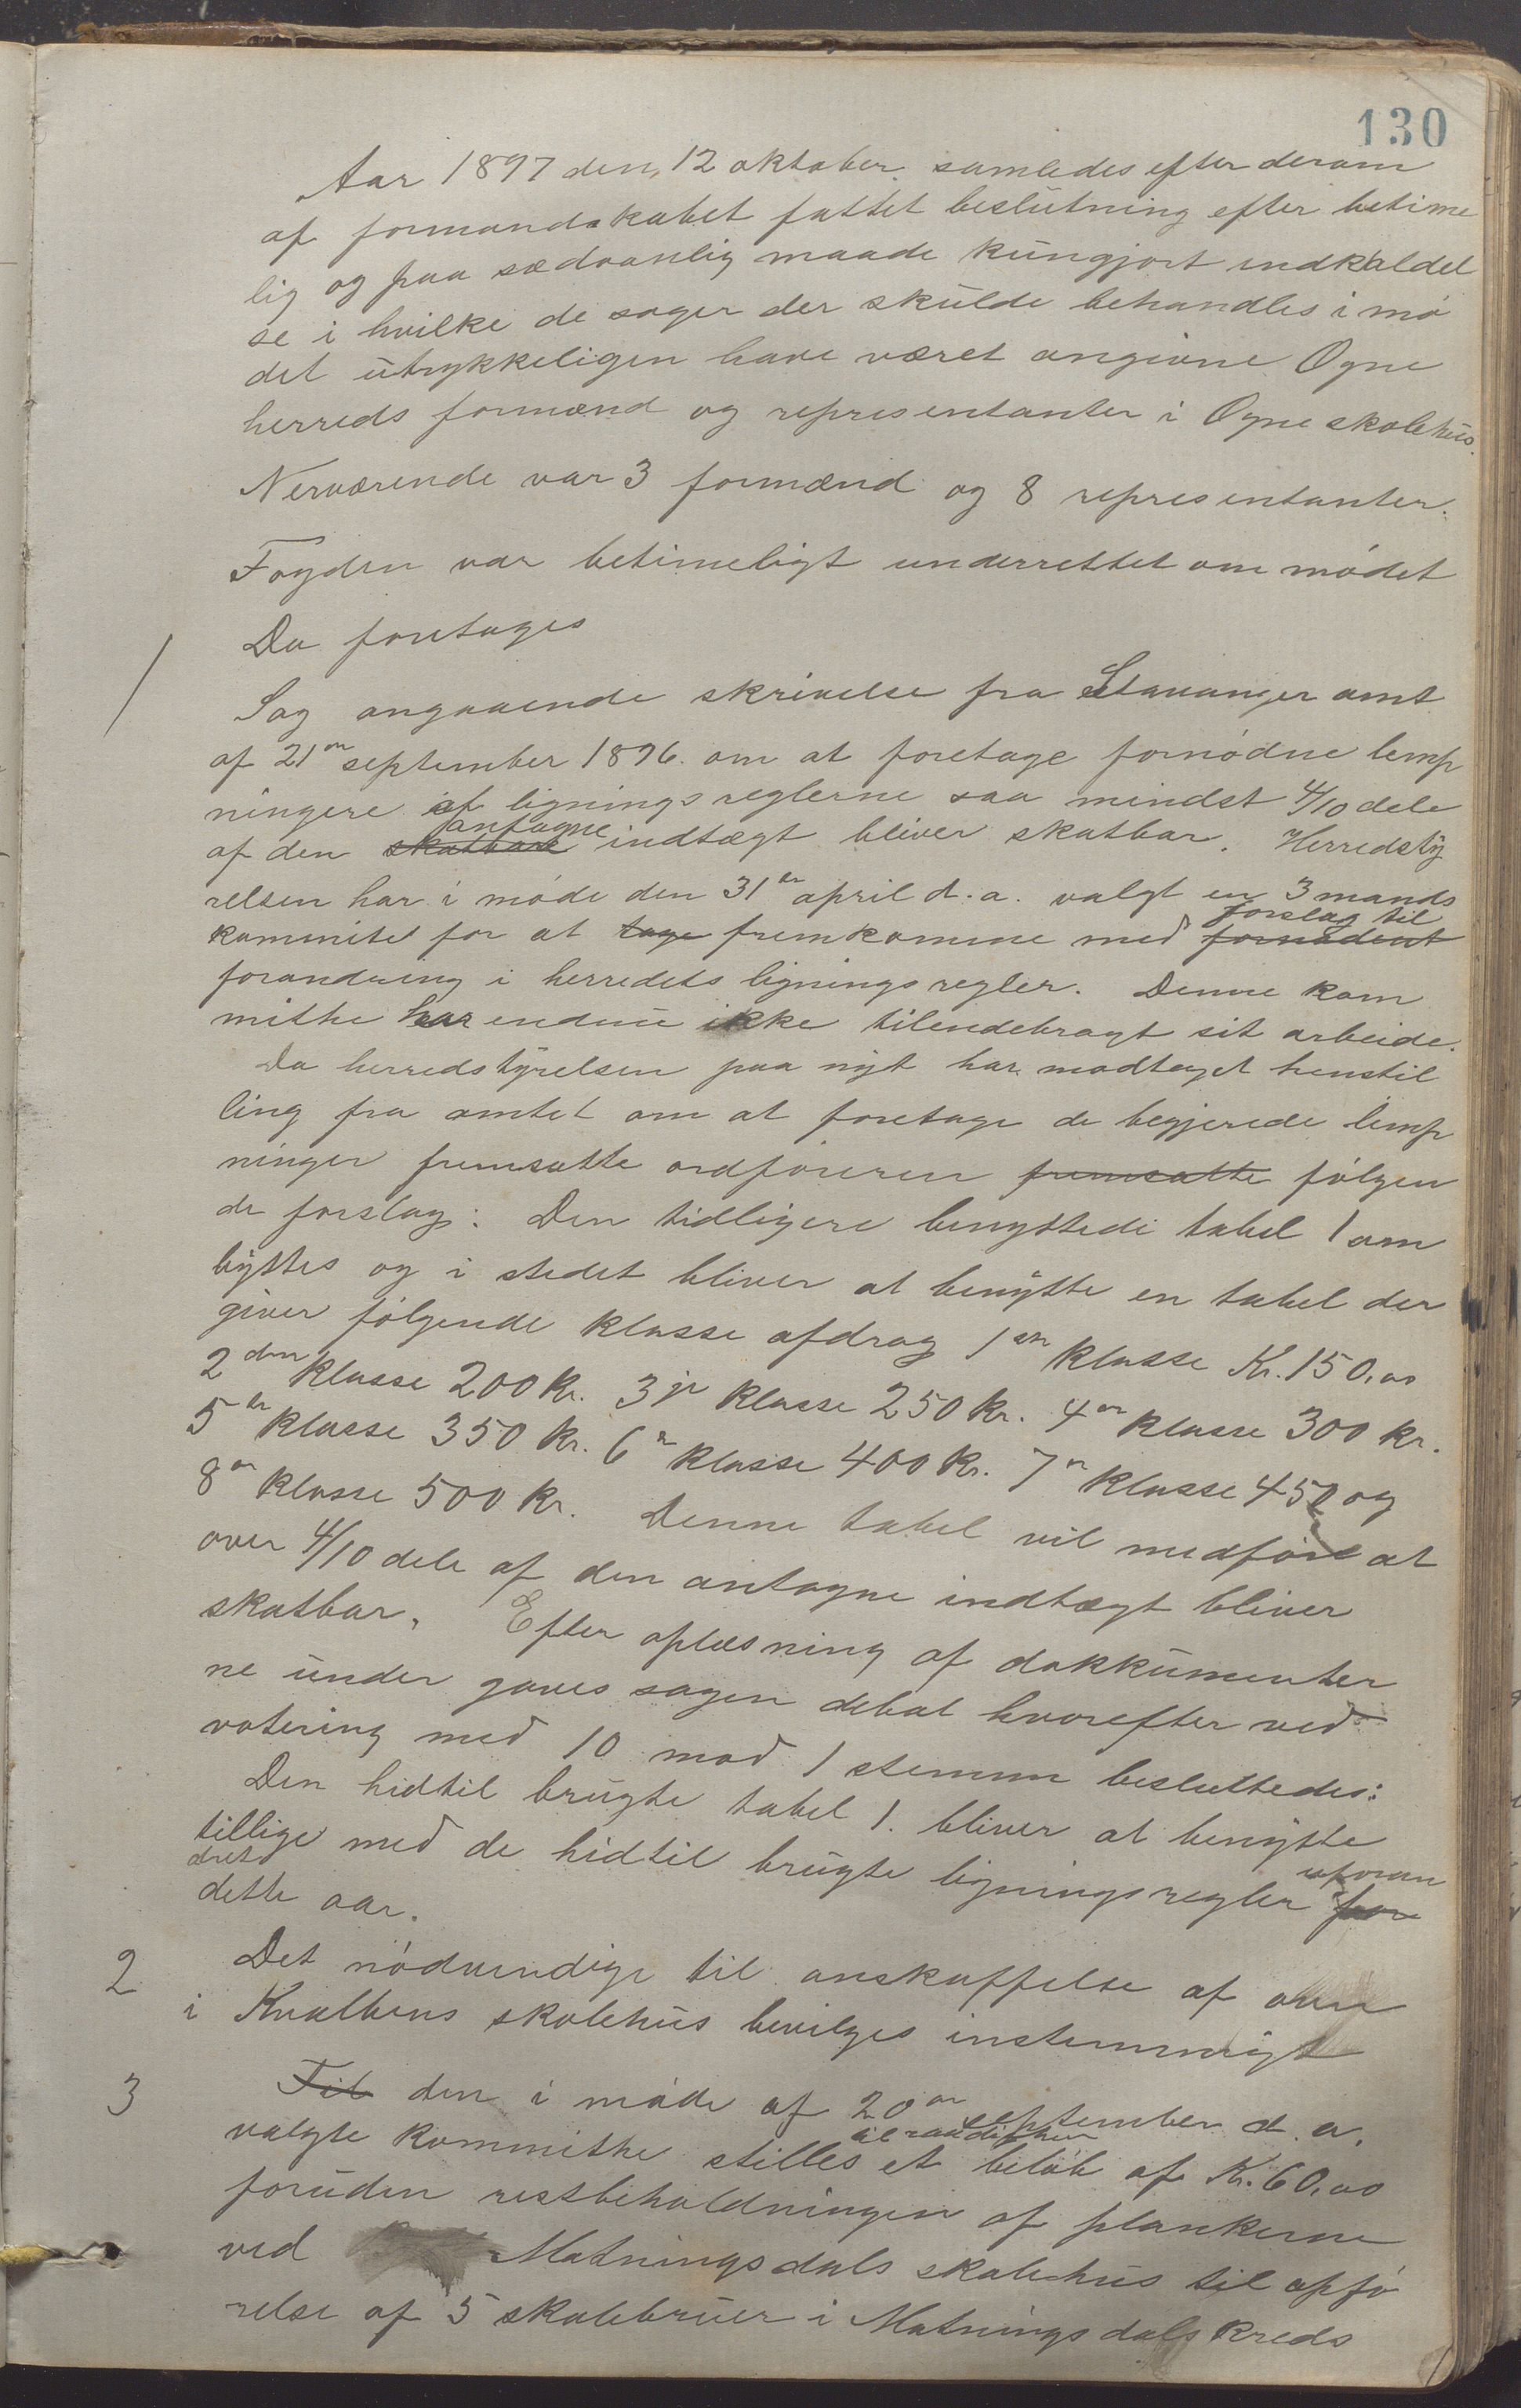 130
Aar 1897 den, 12 oktober. samledes efter derom
af formandskabet fattet beslutning efter betime
lig og paa sædvanlig maade kungjort indkaldel
se i hvilke de sager der skulde behandles i mø
det utrykkeligen have været angivne Ogne
herreds formænd og representanter i Ogne skolehus.
Nerværende var 3 formænd og 8 representanter.
Fogden var betimeligt underrettet om mødet
Da foretages
1 Sag angaaende skrivelse fra Stavanger amt
af 21de september 1896. om at foretage fornødne lemp
ningere af ligningsreglerne saa mindst 4/10 dele
af den skatbare antagne indtægt bliver skatbar. Herredsty
relsen har i møde den 31te april d. a. valgt en 3 mands
kommite for at tage fremkomme med fornødent forslag til
forandring i herredets ligningsregler. Denne kom
mithe har endnu ikke tilendebragt sit arbeide.
Da herredstyrelsen paa nyt har modtaget henstil
ling fra amtet om at foretage de begjerede lemp
ninger fremsatte ordføreren fremsatte følgen
de forslag: Den tidligere benyttede tabel 1 om
byttes og i stedet bliver at benytte en tabel der
giver følgende klasse afdrag 1ste klasse Kr. 150,00
2den klasse 200 Kr. 3je klasse 250 Kr. 4de klasse 300 kr.
5te klasse 350 Kr. 6te klasse 400 Kr. 7de klasse 450 og
8de klasse 500 Kr. Denne tabel vil medføre at
over 4/10 dele af den antagne indtægt bliver
skatbar. Efter oplæsning af dokkumenter
ne under gaves sagen debat hvorefter ved
votering med 10 mod 1 stemme besluttedes:
Den hidtil brugte tabel 1. bliver at benytte
tillige med de hidtil brugte ligningsregler for uforan
dret
dette aar.
2 Det nødvendige til anskaffelse af ovn
i Kvalbens skolehus bevilges instemmigt
3 Til den i møde af 20de september d. a.
valgte kommithe stilles til raadighed et beløb af Kr. 60,00
foruden restbeholdningen af plankerne
ved Matningsdals skolehus til opfø
relse af 5 skolebruer i Matningsdals kreds